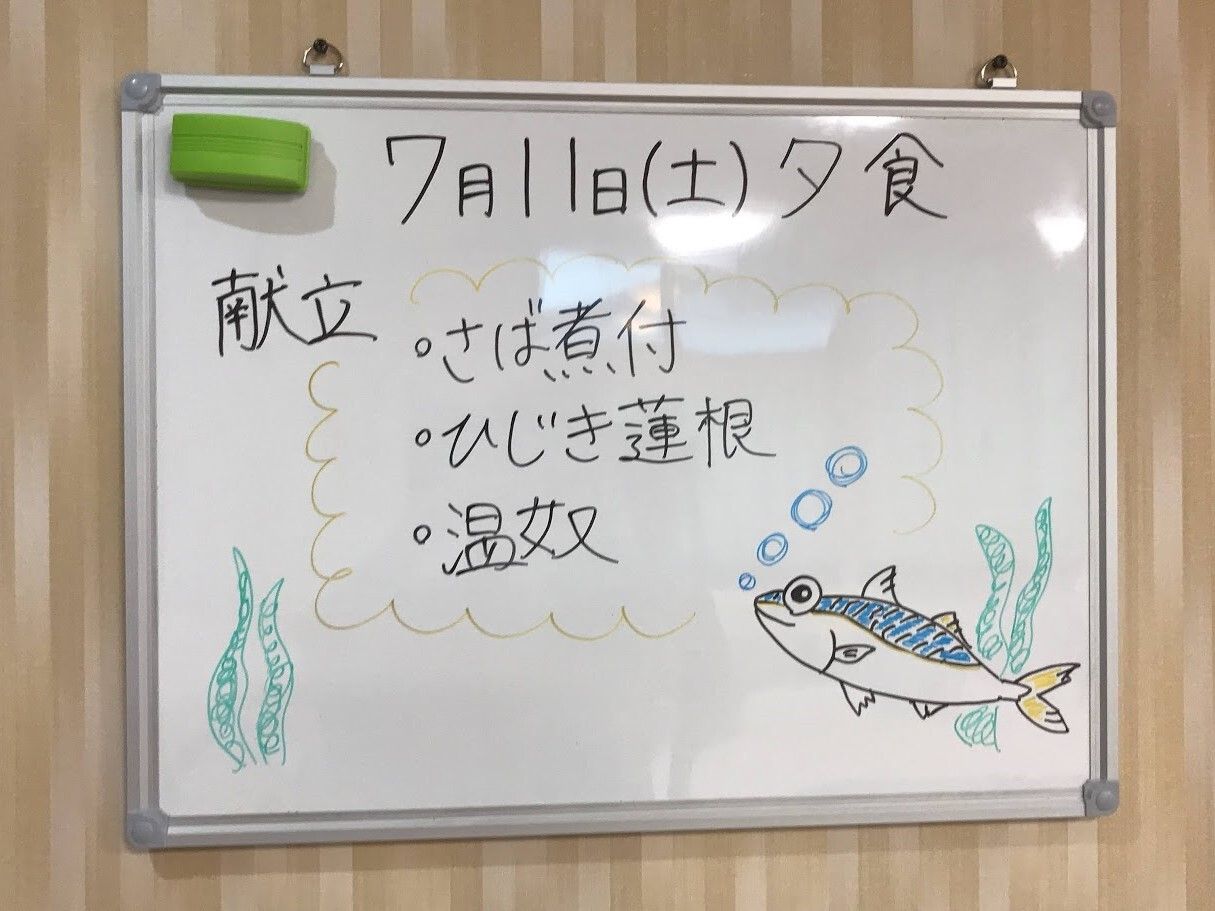 7月11日(土)夕食
献立
・さば煮付
・ひじき蓮根
・温奴